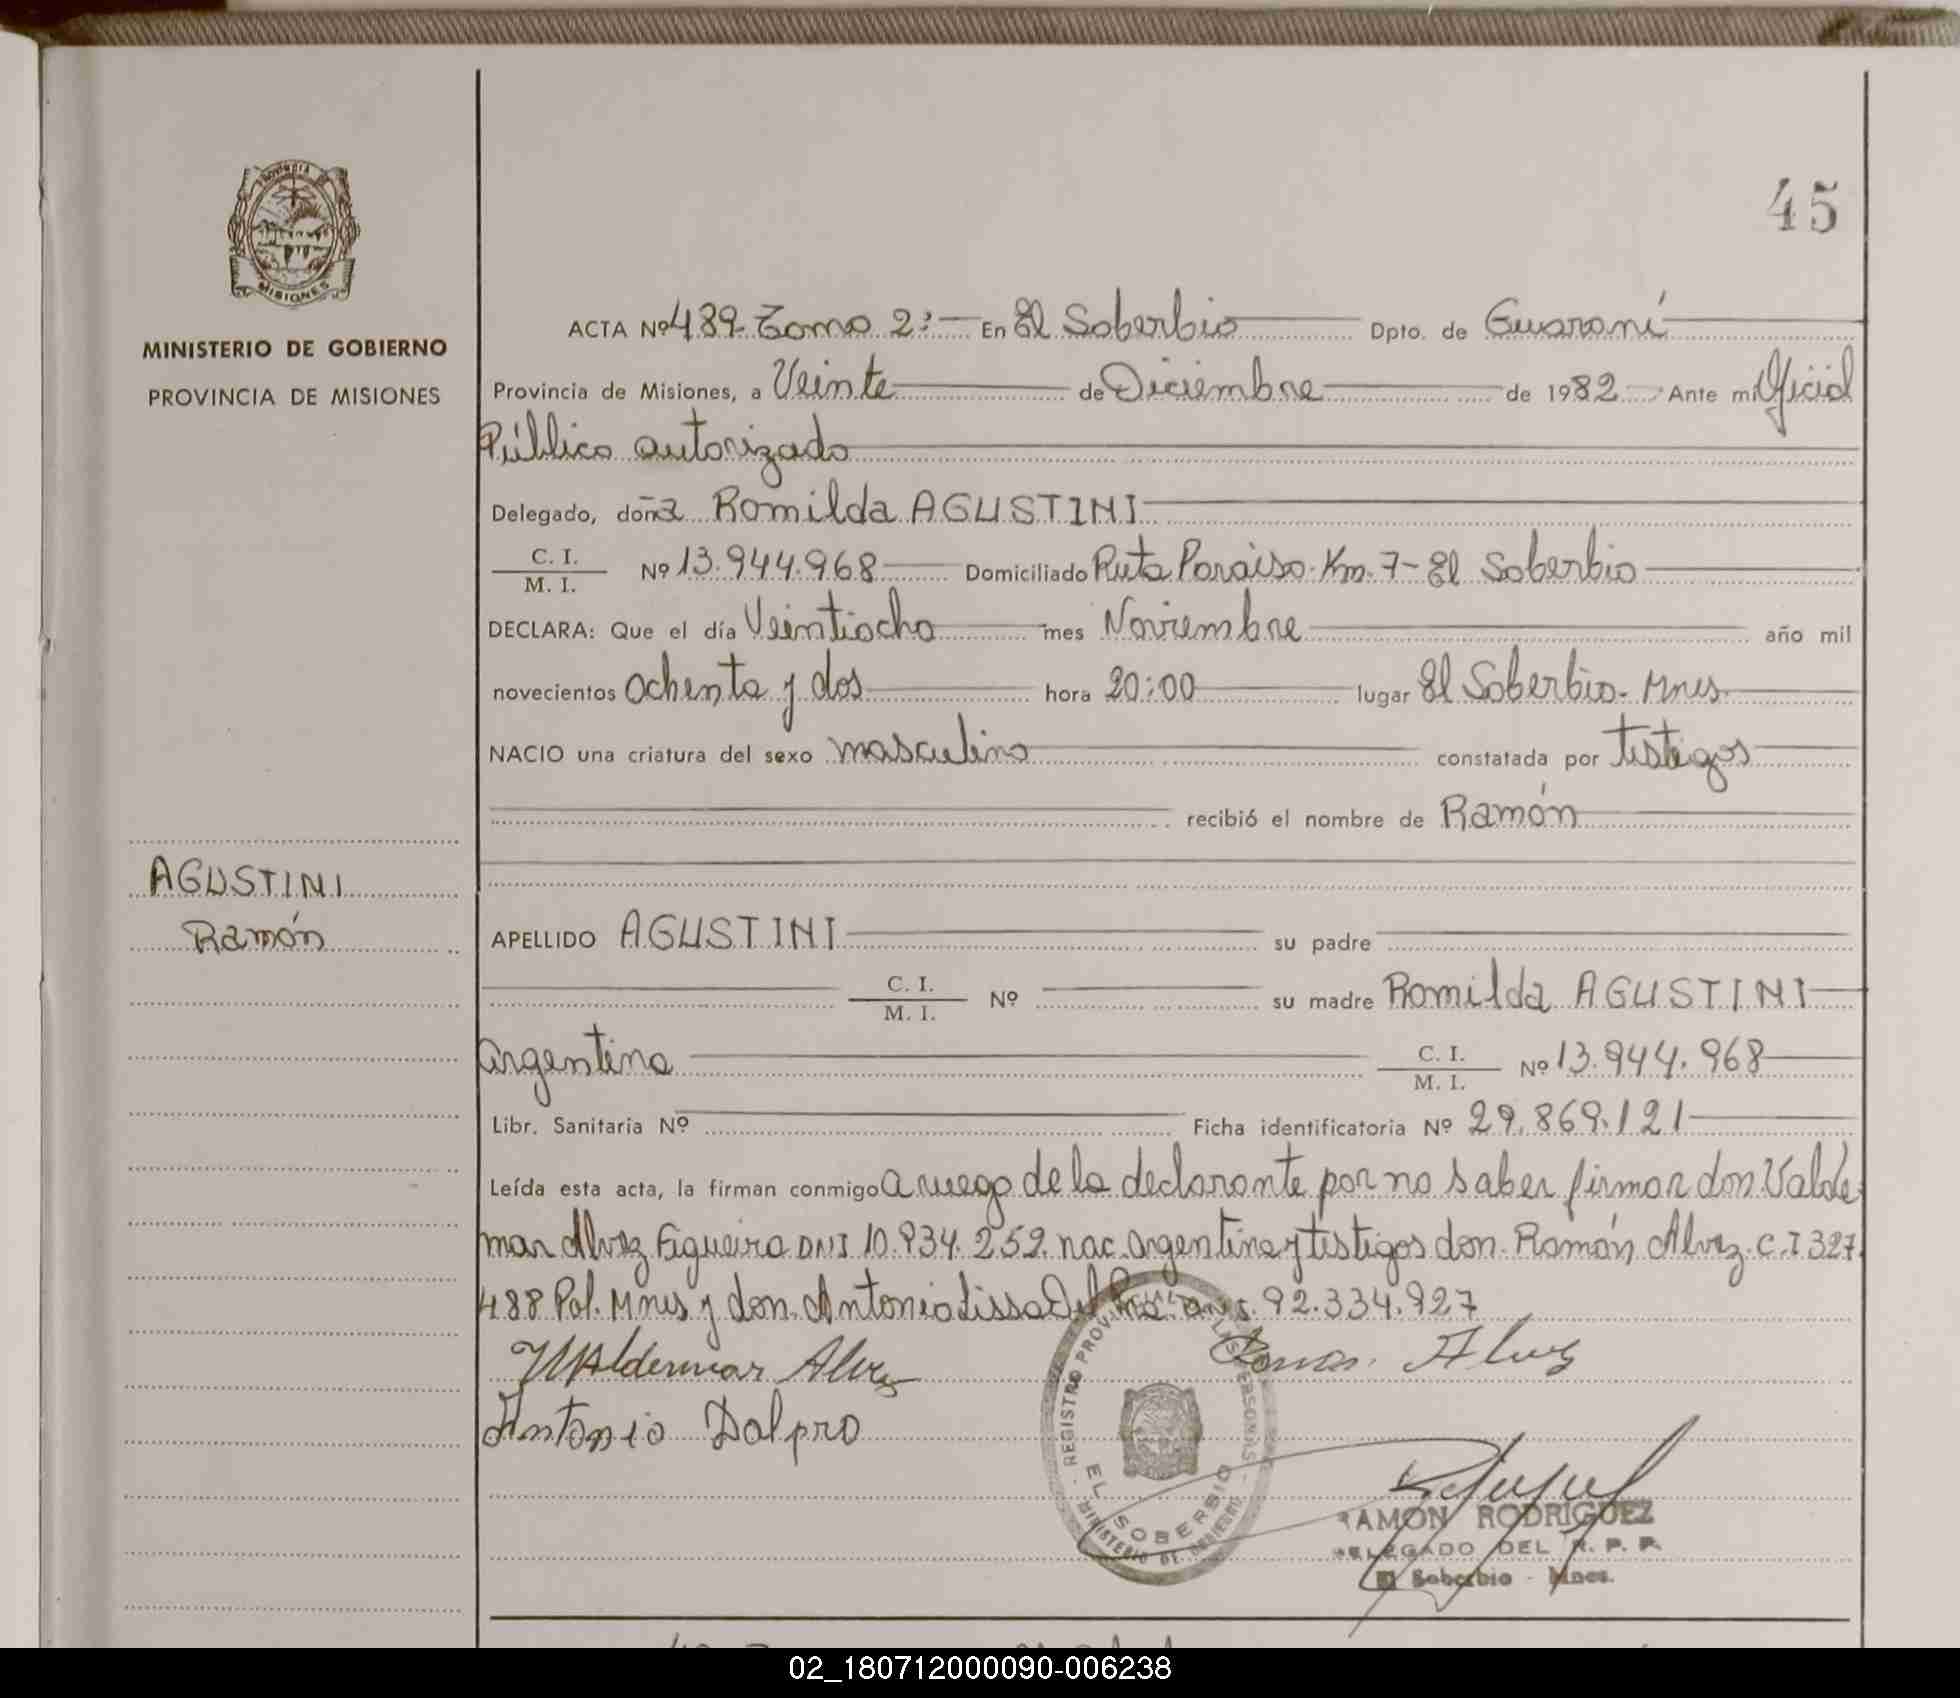 45
PROVINCIA DE
MISIONES
MINISTERIO DE GOBIERNO
PROVINCIA DE MISIONES
ACTA Nº 489. Tomo 2º: En El Soberbio Dpto. de Guaraní
Provincia de Misiones, a Veinte de Diciembre de 1982 Ante mi Oficial
Público autorizado
Delegado, doña Romilda AGUSTINI
C. I.
M. I. Nº 13.944.968 Domiciliado Ruta Paraiso. Km. 7- El Soberbio
DECLARA: Que el día Veintiocho mes Noviembre año mil
novecientos ochenta y dos hora 20:00 lugar El Soberbio. Mnes.
NACIO una criatura del sexo masculino constatada por testigos
recibió el nombre de Ramón
AGUSTINI
Ramón
APELLIDO AGUSTINI su padre
C. I.
M. I. Nº su madre Romilda AGUSTINI
argentina C. I.
M. I. Nº 13.944.968
Libr. Sanitaria Nº Ficha identificatoria Nº 29.869.121
Leída esta acta, la firman conmigo a ruego de la declarante por no saber firmar don Valde
mar Alvez Figueira DNI 10.934.259. nac. argentina y testigos don. Ramón Alvez. C.I 327.
488 Pol. Mnes y don. Antonio Lissa Dal 92.334.927
Waldemar Alvez Alvez
Antonio Dalpro
REGISTRO PROVINCIAL DE LAS PERSONAS
EL SOBERBIO
MINISTERIO DE GOBIERNO
RAMON RODRIGUEZ
DELEGADO DEL R. P. P.
El Soberbio - Mnes.
02_180712000090-006238